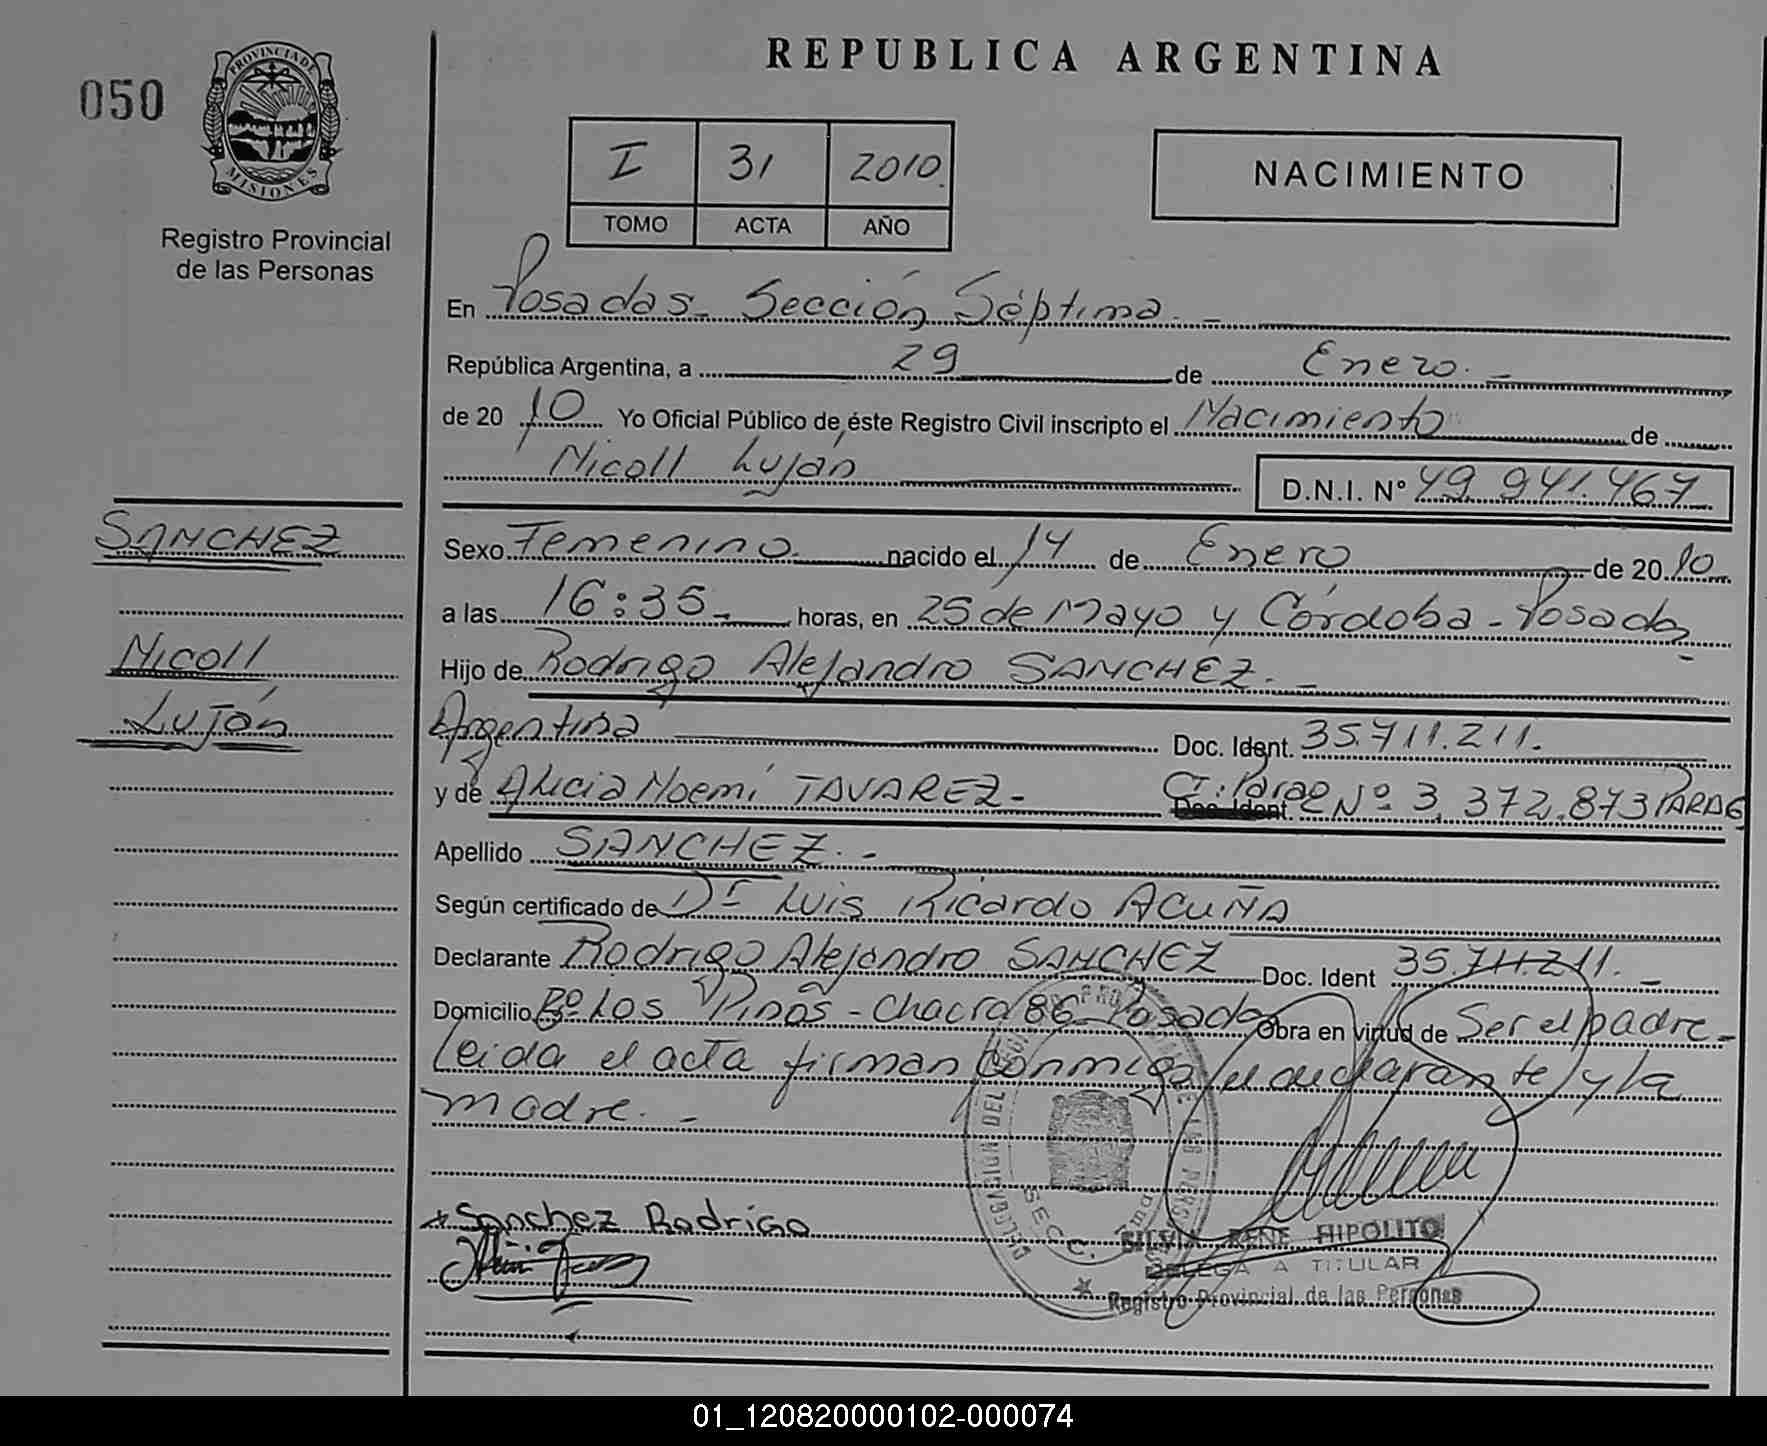 050
PROVINCIA DE
MISIONES
Registro Provincial
de las Personas
REPUBLICA ARGENTINA
I 31 2010.
TOMO ACTA AÑO
NACIMIENTO
En Posadas - Sección Séptima. -
República Argentina, a 29 de Enero. -
de 20 10 Yo Oficial Público de éste Registro Civil inscripto el Nacimiento de
Nicoll Luján D.N.I. Nº 49.941.467
SANCHEZ
Nicoll
Luján
Sexo Femenino. nacido el 14 de Enero de 20 10
a las 16:35 - horas, en 25 de Mayo y Córdoba - Posadas
Hijo de Rodrigo Alejandro SANCHEZ. -
Argentina Doc. Ident. 35.711.211.
y de Alicia Noemí TAVAREZ - CI: Parag Nº 3.372.873 PARAG
Doc. Ident.
Apellido SANCHEZ. -
Según certificado de Dr Luis Ricardo ACUÑA
Declarante Rodrigo Alejandro SANCHEZ Doc. Ident 35.711.211. -
Domicilio Bº Los Pinos - Chacra 86 - Posadas Obra en virtud de Ser el padre -
Leida el acta firman conmigo el declarante y la
madre. -
DELEGACION DEL
SECC.
Sanchez Rodrigo
SILVIA RENE HIPOLITO
DELEGA A TITULAR
Registro Provincial de las Personas
01_120820000102-000074